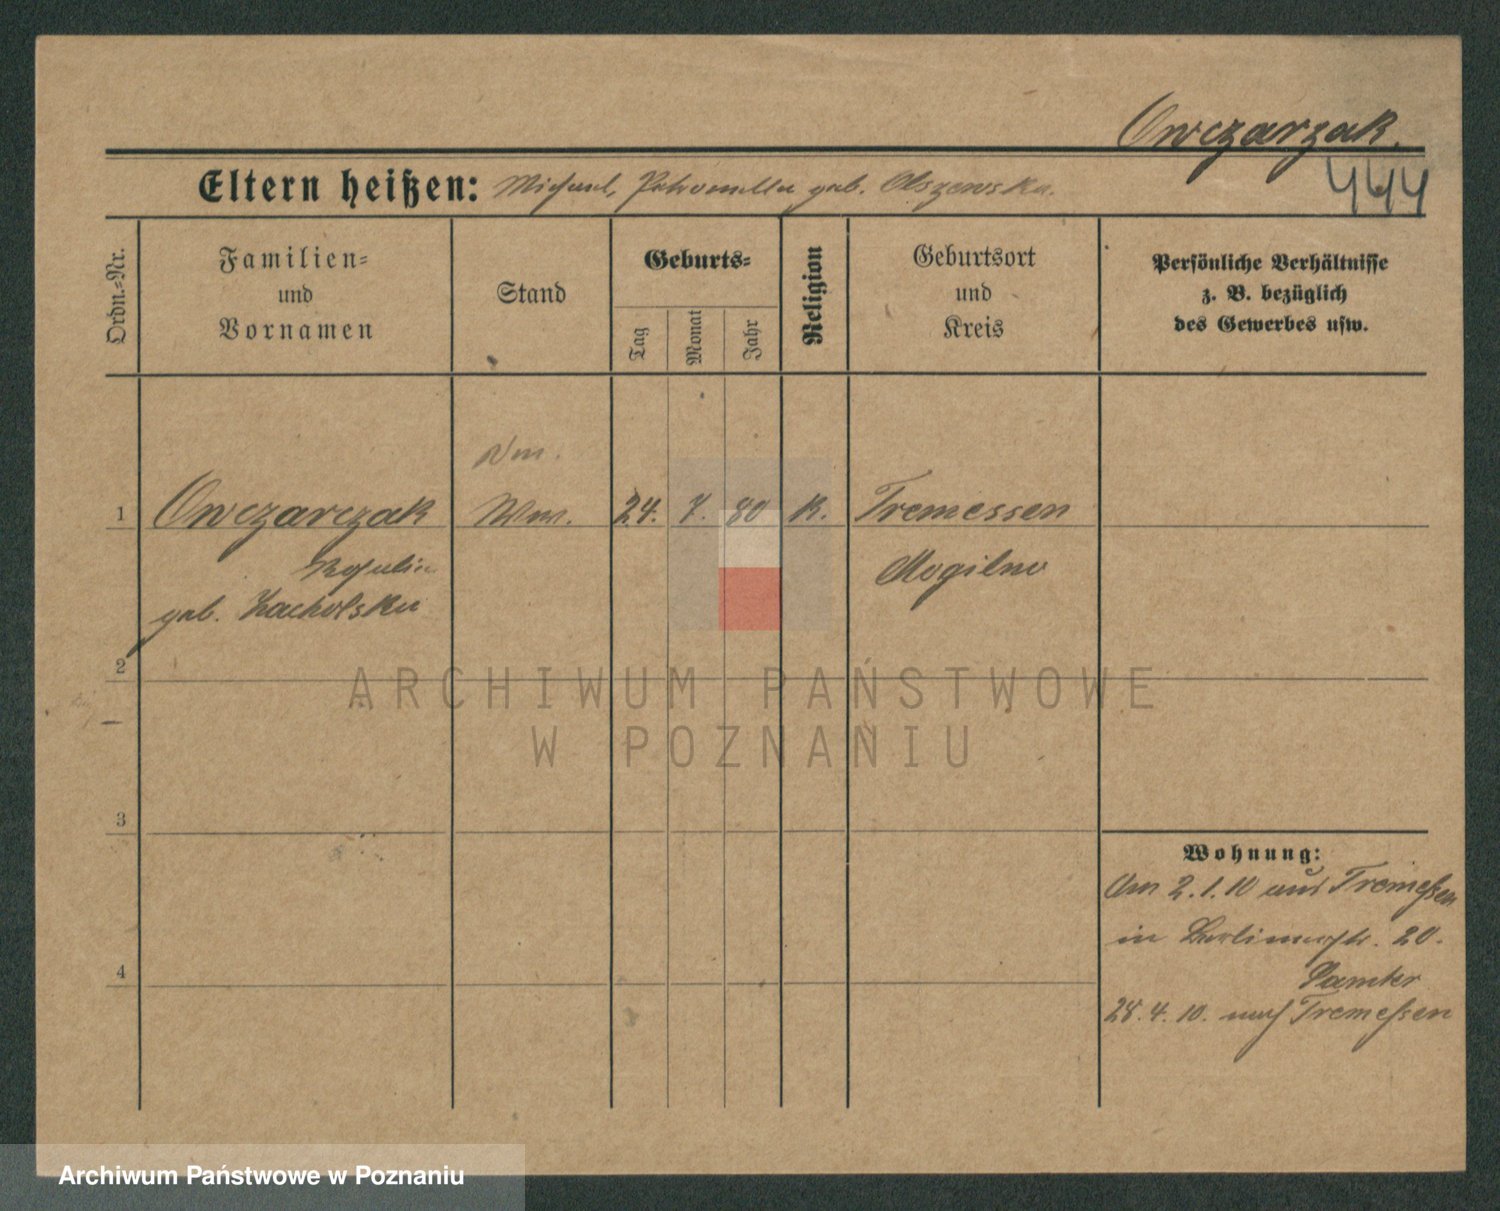 Owczarzak.
Eltern heißen: Michael, Petronella geb. Olszewska.
444
Ordn.=Nr.
Familien=
und
Vornamen
Stand
Geburts=
Tag
Monat
Jahr
Religion
Geburtsort
und
Kreis
Persönliche Verhältnisse
z. B. bezüglich
des Gewerbes usw.
1 Owczarczak Ww. 24. 7. 80 K. Tremessen
Mogilno
geb.
2
3
4
Wohnung:
Am 2.1.10 aus Tremeßen
in Berlinerstr. 20.
Samter
28.4.10. nach Tremeßen
ARCHIWUM PAŃSTWOWE
W POZNANIU
Archiwum Państwowe w Poznaniu